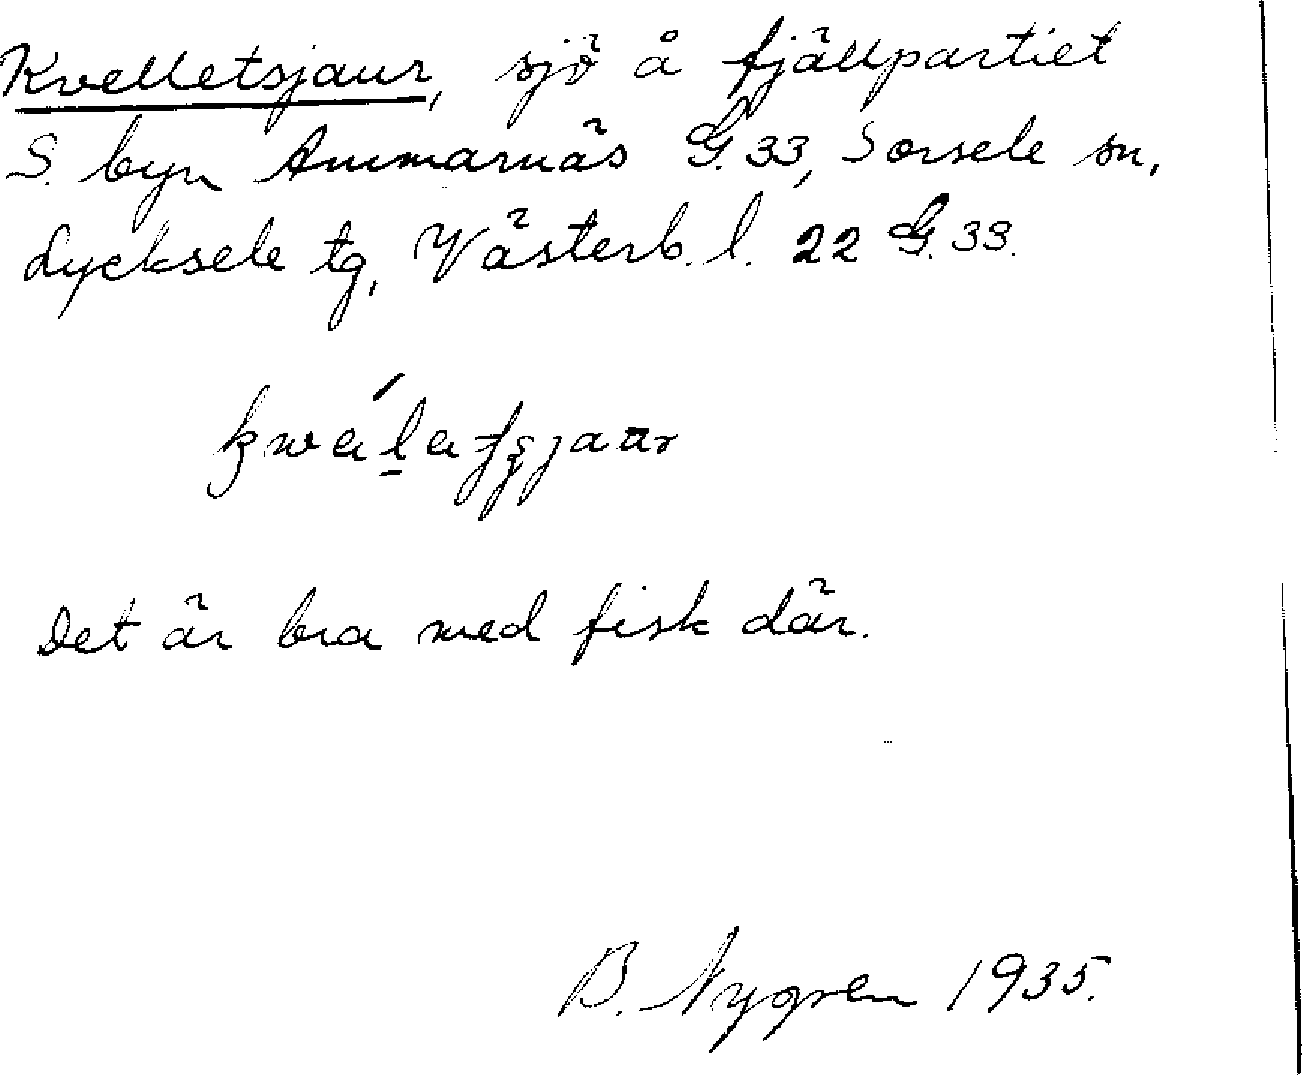 Kvelletsjaur, sjö å fjällpartiet
S. byn Ammarnäs G. 33, Sorsele sn,
Lycksele tg, Västerb. l. 22 G. 33.
Det är bra med fisk där.
B. Nygren 1935.